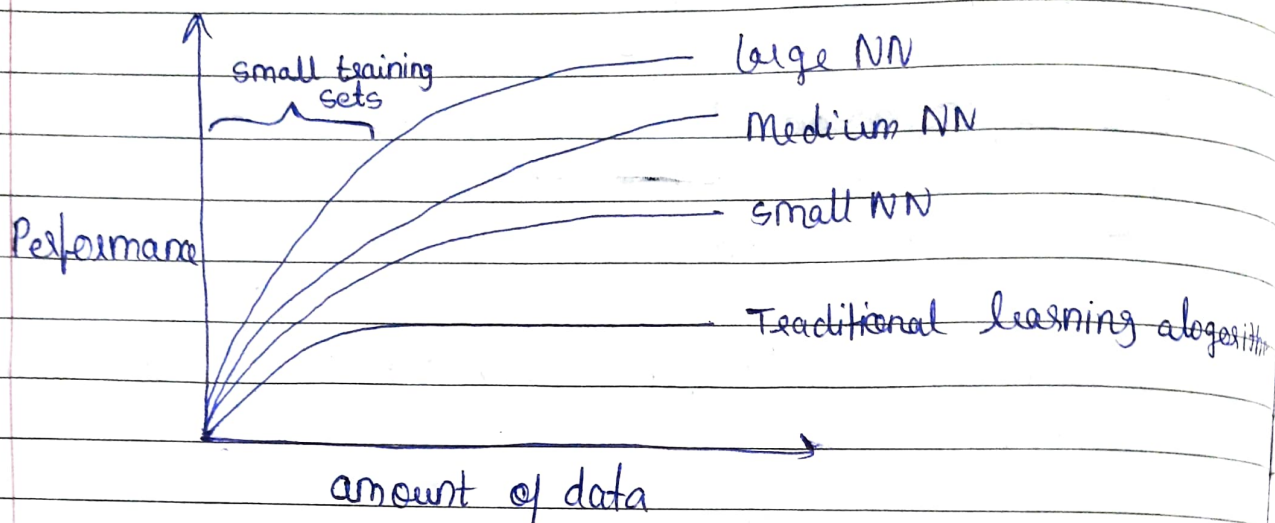 small training
sets
large NN
Medium NN
small NN
Performance
Traditional learning alogorithm
amount of data